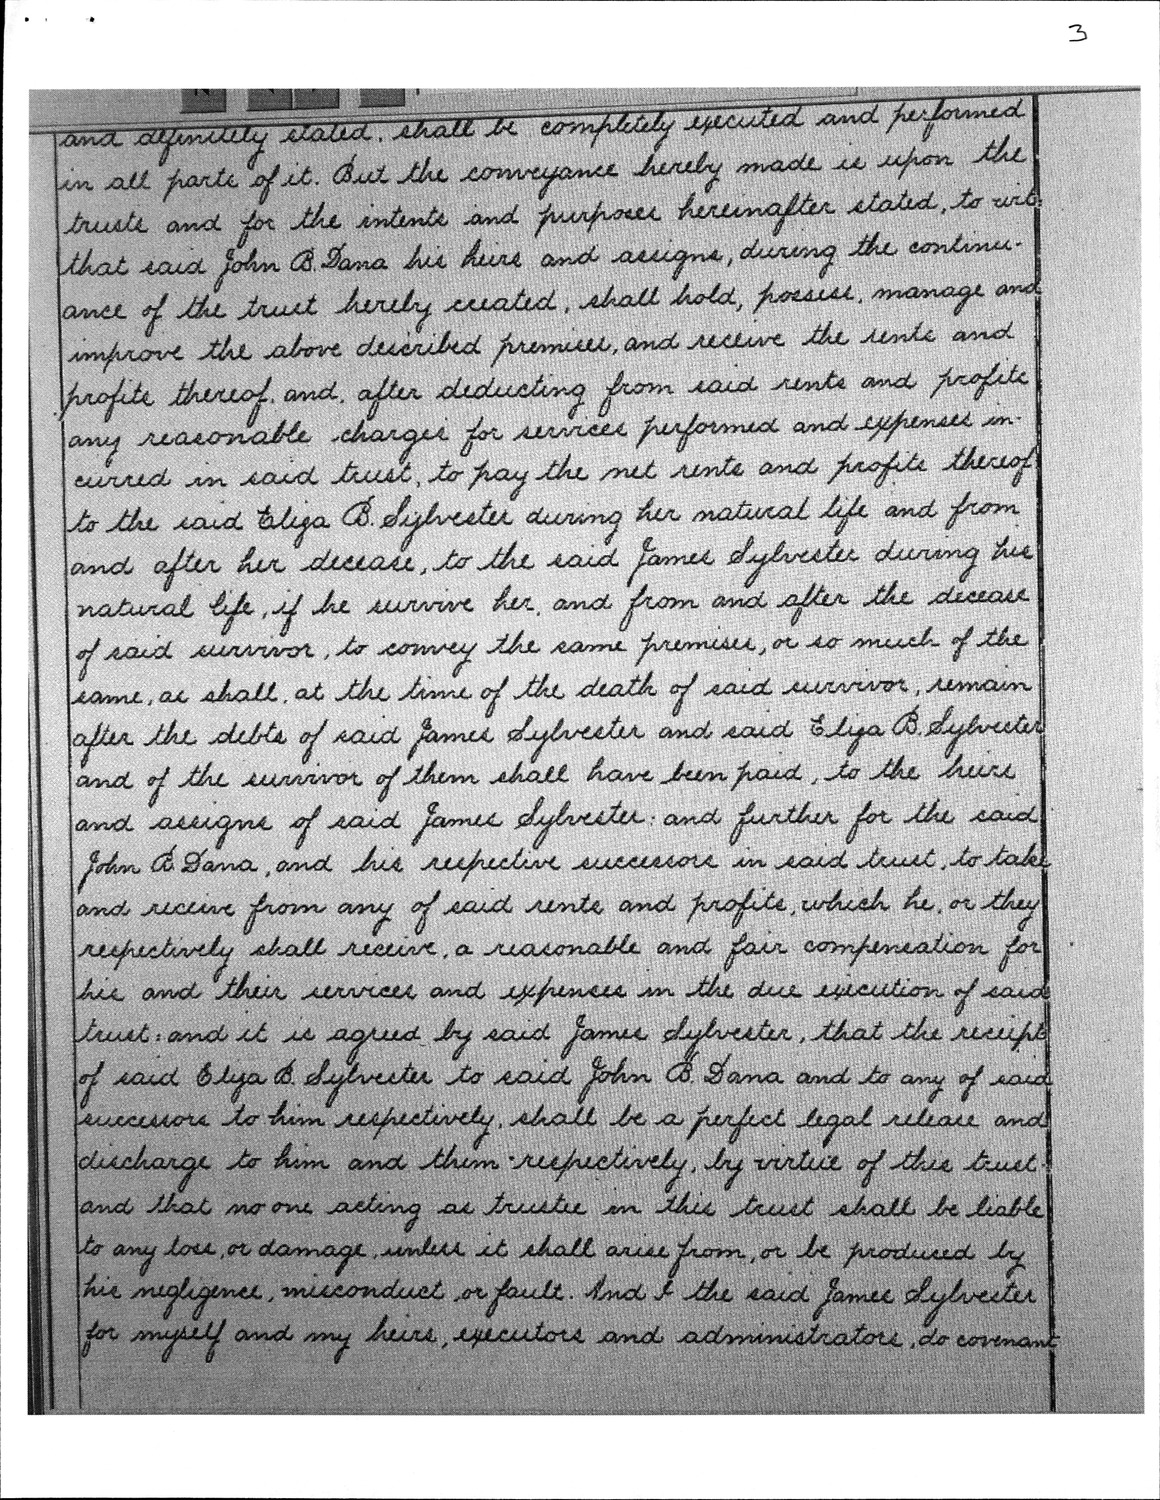 3
and definitely stated, shall be completely executed and performed
in all parts of it. But the conveyance hereby made is upon the
trusts and for the intents and purposes hereinafter stated, to wit:
that said John B. Dana his heirs and assigns, during the continu-
ance of the trust hereby created, shall hold, possess, manage and
improve the above described premises, and receive the rents and
profits thereof, and, after deducting from said rents and profits
any reasonable charges for services performed and expenses in-
curred in said trust, to pay the net rents and profits thereof
to the said Eliza B. Sylvester during her natural life and from
and after her decease, to the said James Sylvester during his
natural life, if he survive her, and from and after the decease
of said survivor, to convey the same premises, or so much of the
same, as shall, at the time of the death of said survivor, remain
after the debts of said James Sylvester and said Eliza B. Sylvester
and of the survivor of them shall have been paid, to the heirs
and assigns of said James Sylvester: and further for the said
John B. Dana, and his respective successors in said trust, to take
and receive from any of said rents and profits, which he, or they
respectively shall receive, a reasonable and fair compensation for
his and their services and expenses in the due execution of said
trust: and it is agreed by said James Sylvester, that the receipt
of said Eliza B. Sylvester to said John B. Dana and to any of said
successors to him respectively, shall be a perfect legal release and
discharge to him and them respectively, by virtue of this trust:
and that no one acting as trustee in this trust shall be liable
to any loss, or damage, unless it shall arise from, or be produced by
his negligence, misconduct or fault. And I the said James Sylvester
for myself and my heirs, executors and administrators, do covenant